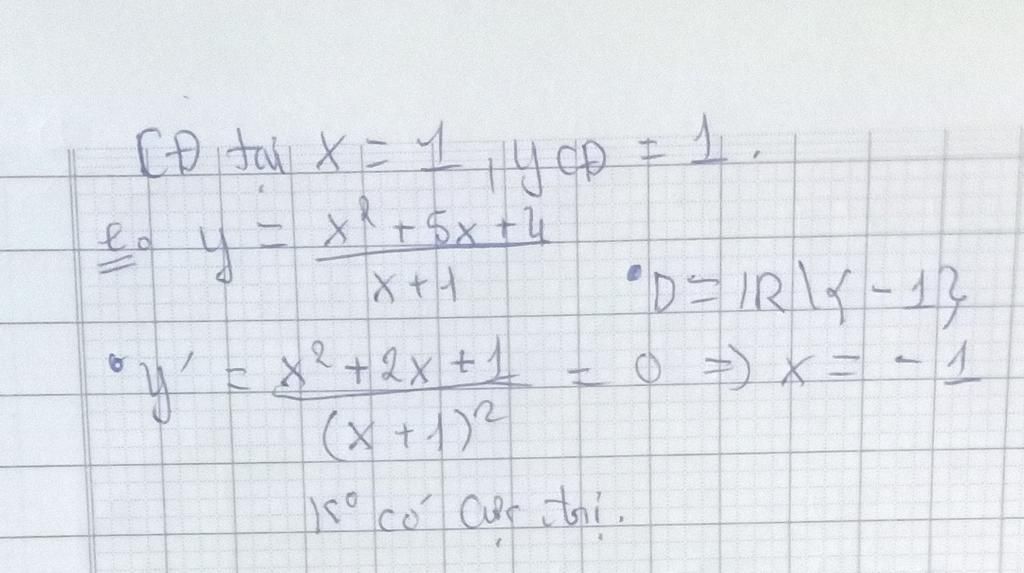 CĐ tại x = 1, yCĐ = 1.
e. y = (x² + 5x + 4)/(x + 1)
• D = ℝ \ { - 1}
• y' = (x² + 2x + 1)/(x + 1)² = 0 => x = - 1
K° có cực trị.